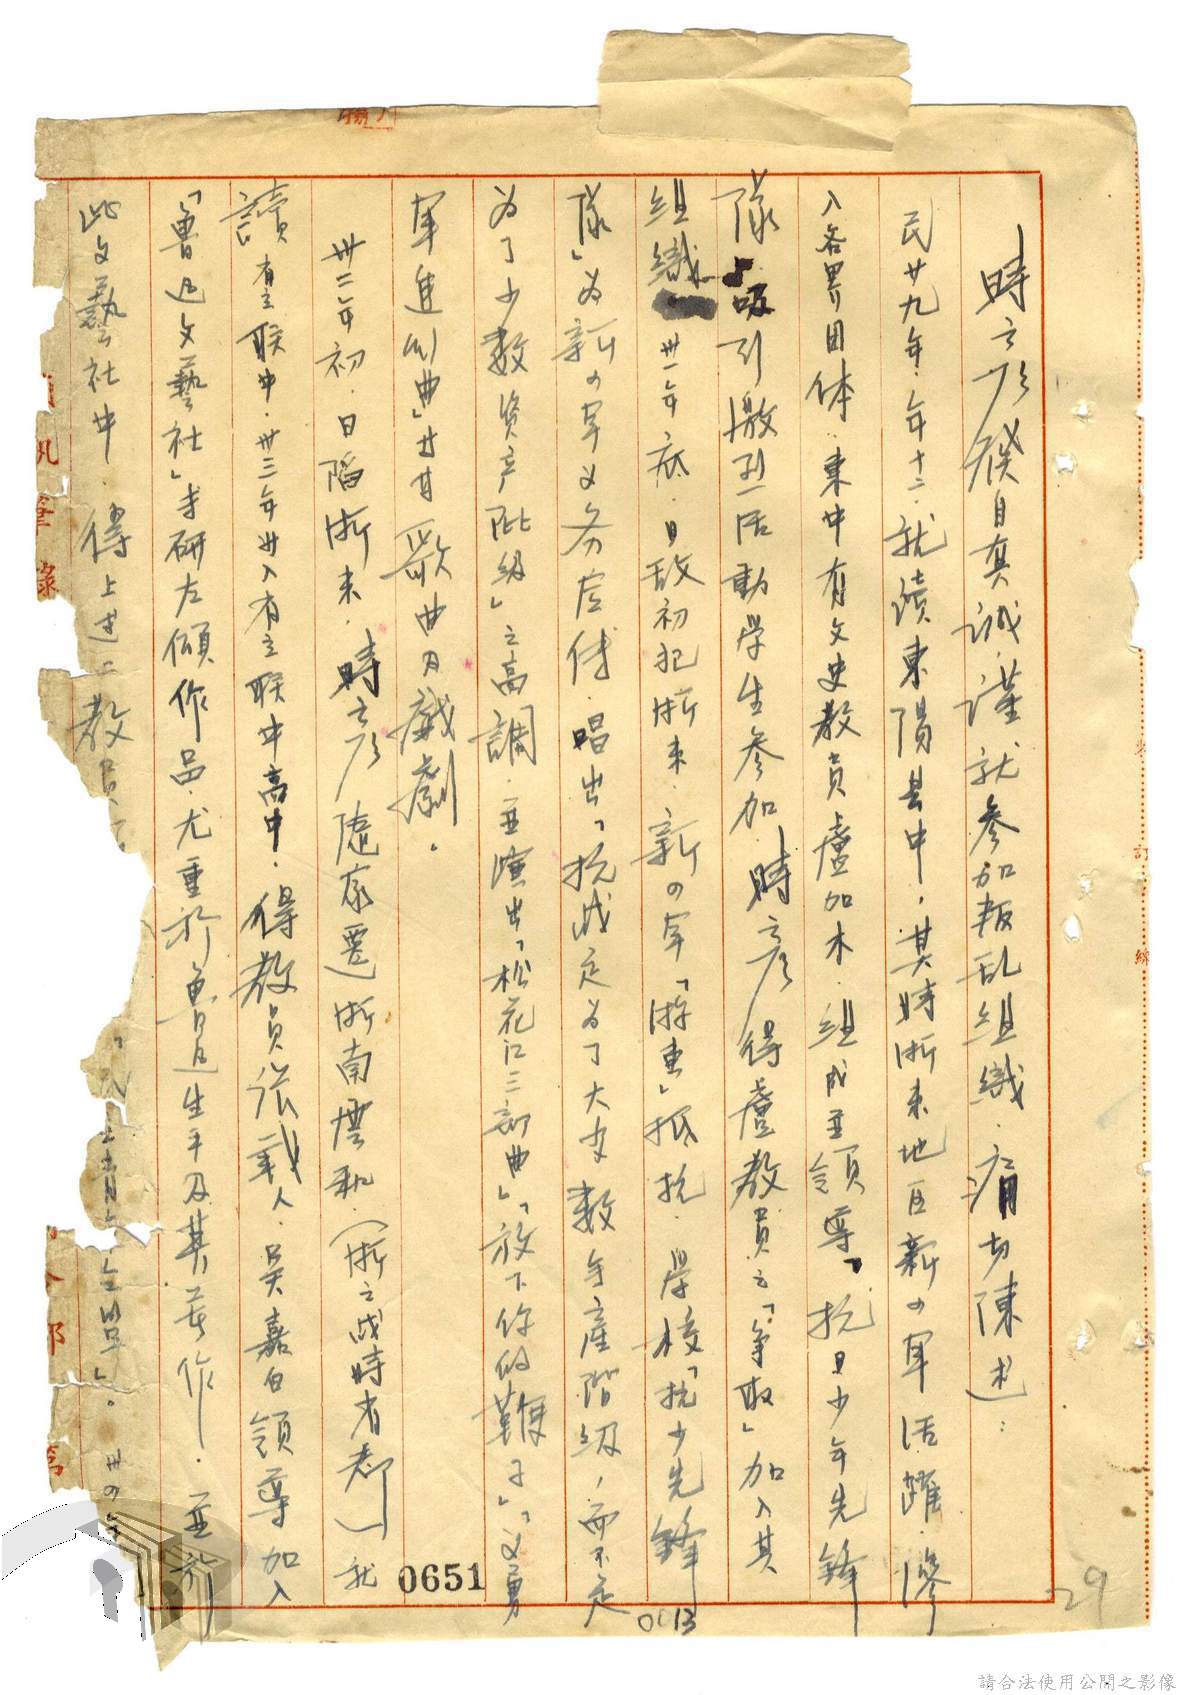 時彥發自真誠、謹就參加叛乱組織、痛切陳述：
民廿九年．年十二．就讀東陽县中．其時浙東地区新四軍活躍．滲
入各界団体．東中有文史教員盧加木．組成並領導「抗日少年先鋒
隊」吸引激烈活動學生參加．時彥得盧教員之「爭取」加入其
組織 卅一年底．日敌初犯浙東．新四軍「浙東」抵抗．學校「抗少先鋒
隊」为新四軍义务宣传．唱出「抗战是为了大多数無產階級，而不是
为了少数資产阶级」之高調．並演出「松花江三部曲」「放下你的鞭子」「义勇
軍進行曲」等歌曲及戲劇。
卅二年初．日陷浙東．時彥隨家遷浙南雲和．（浙之战時省都）就
讀省立联中．卅三年升入省立联中高中．得教員張載人．吳嘉白領導加入
「魯迅文藝社」專研左傾作品．尤重於魯迅生平及其著作．並於
此文藝社中．得上述二教員
「民主青年 同盟」。卅四年
0651
0013
29
訂
線
筆錄
部
請合法使用公開之影像